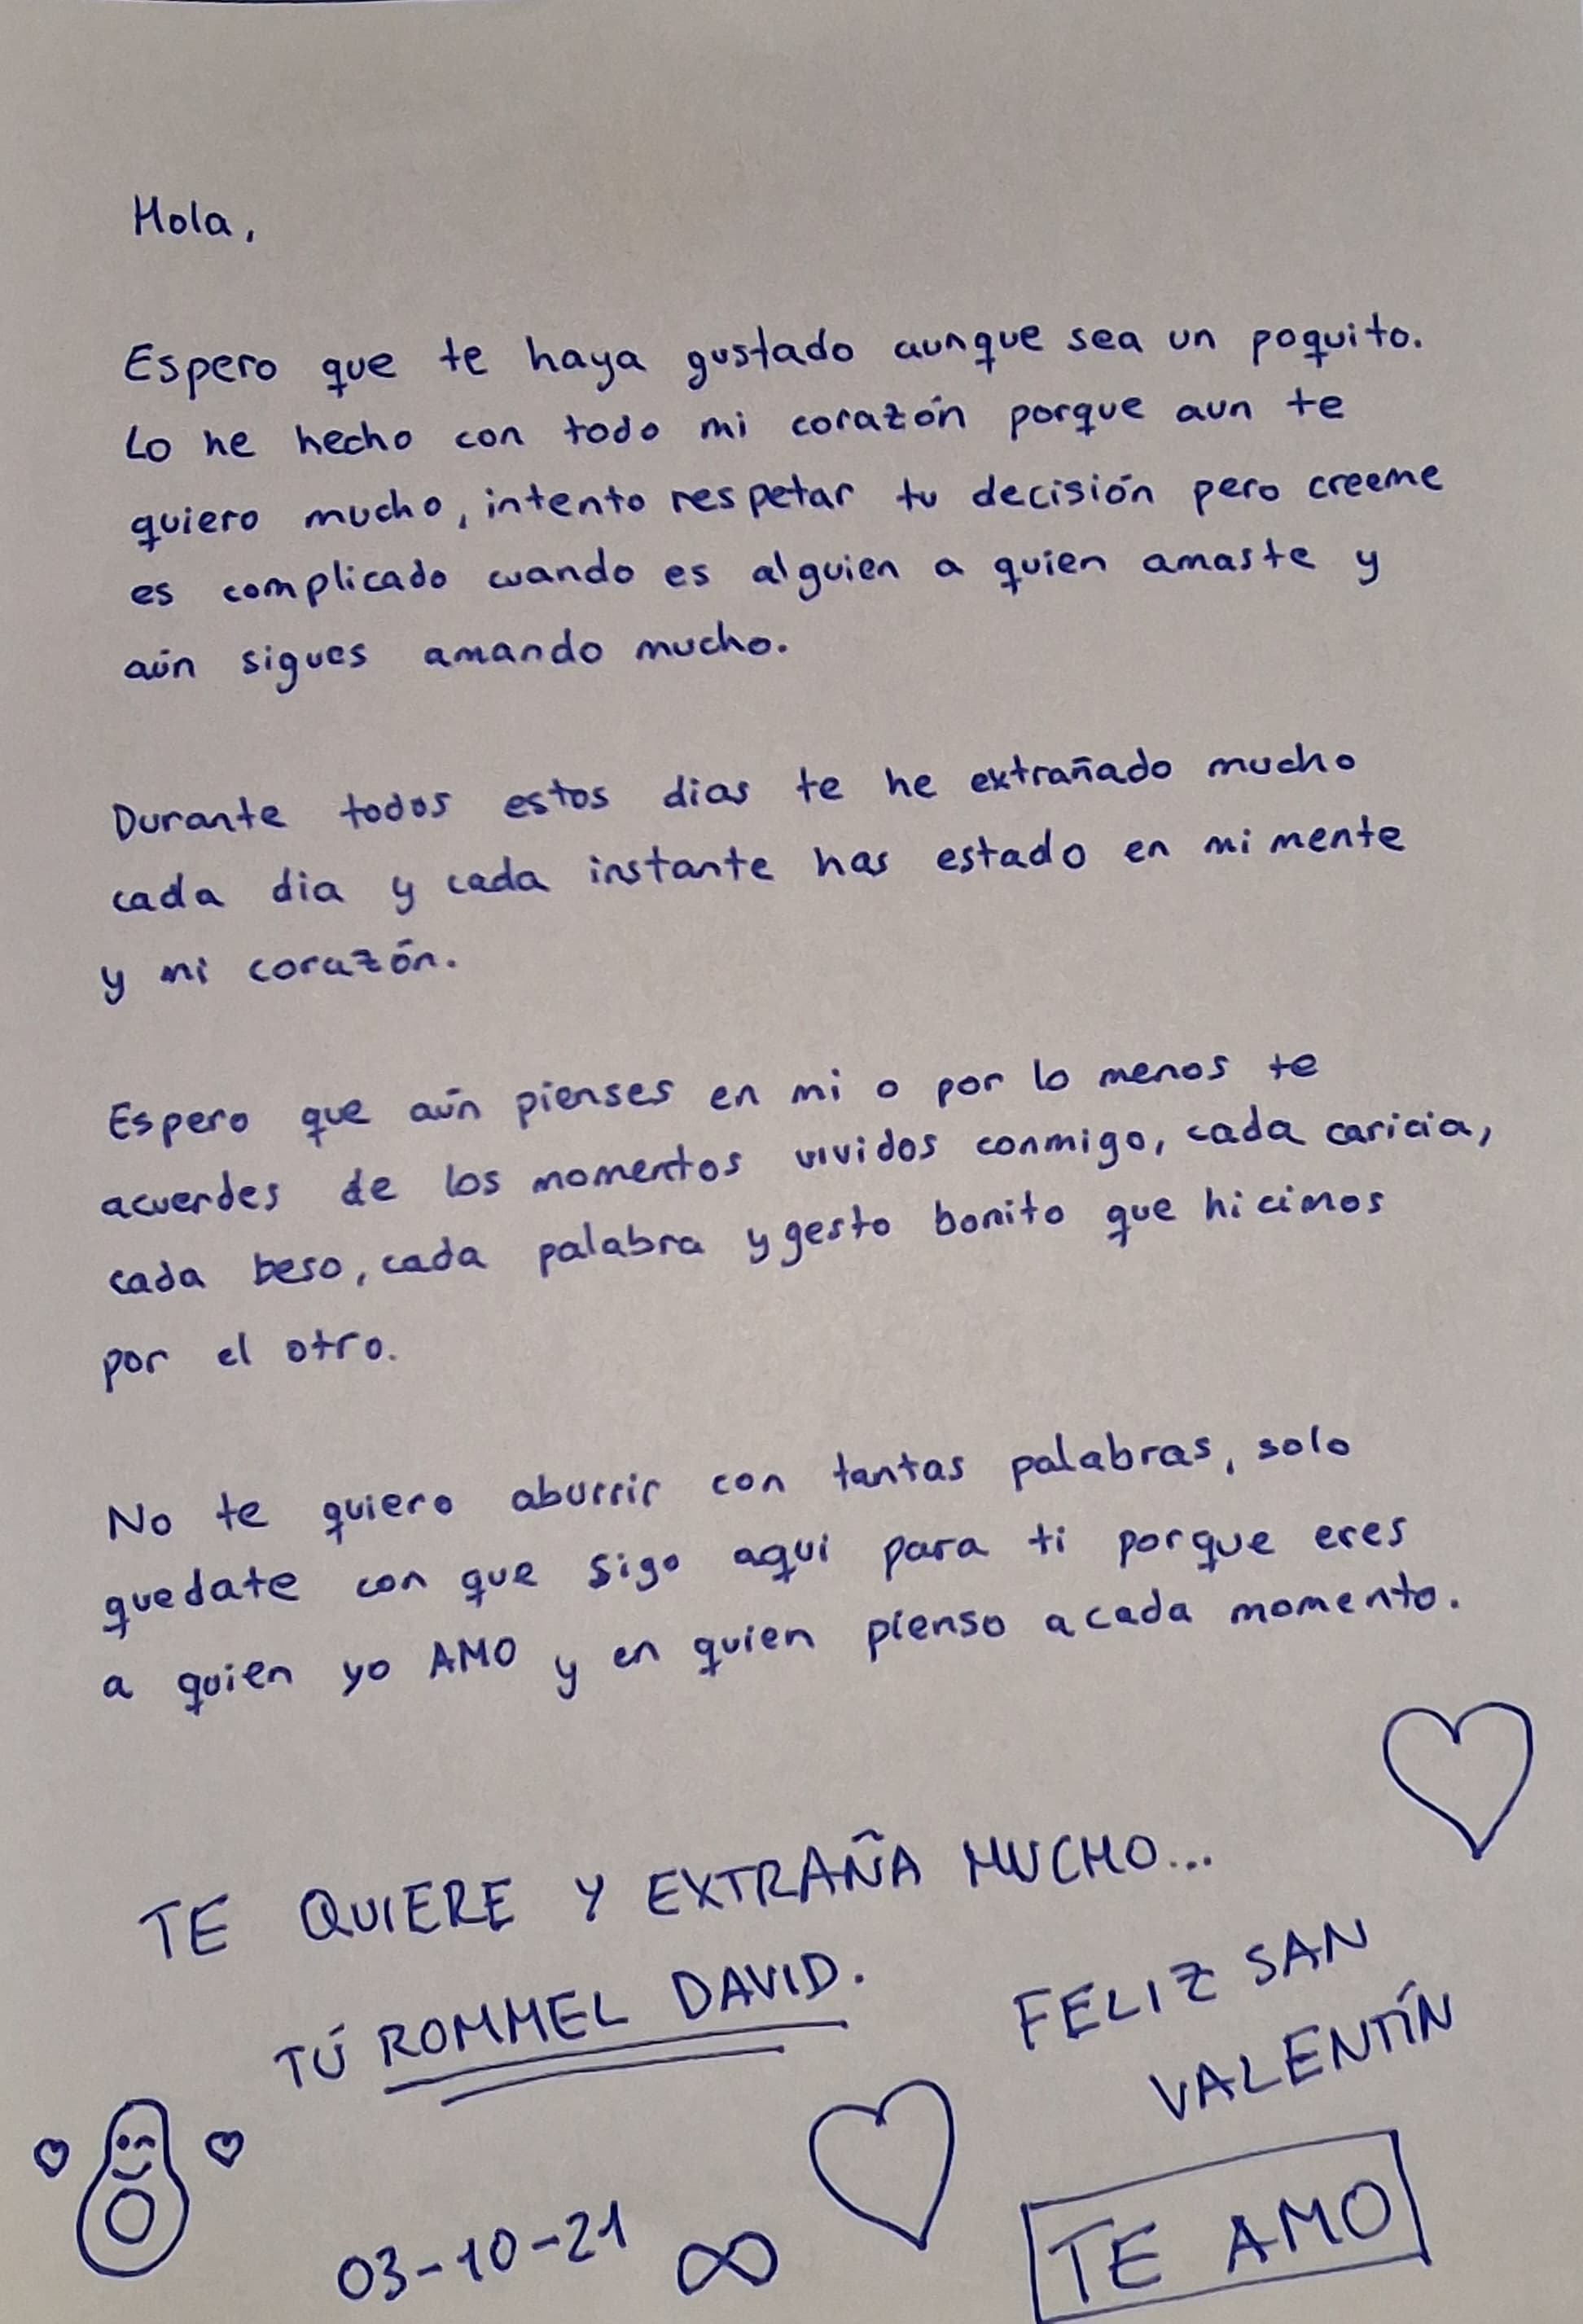 Hola,
Espero que te haya gustado aunque sea un poquito.
Lo he hecho con todo mi corazón porque aun te
quiero mucho, intento respetar tu decisión pero creeme
es complicado cuando es alguien a quien amaste y
aún sigues amando mucho.
Durante todos estos dias te he extrañado mucho
cada dia y cada instante has estado en mi mente
y mi corazón.
Espero que aún pienses en mi o por lo menos te
acuerdes de los momentos vividos conmigo, cada caricia,
cada beso, cada palabra y gesto bonito que hicimos
por el otro.
No te quiero aburrir con tantas palabras, solo
quedate con que sigo aqui para ti porque eres
a quien yo AMO y en quien pienso a cada momento.
TE QUIERE Y EXTRAÑA MUCHO...
TÚ ROMMEL DAVID.
FELIZ SAN
VALENTÍN
03-10-21 ∞
TE AMO